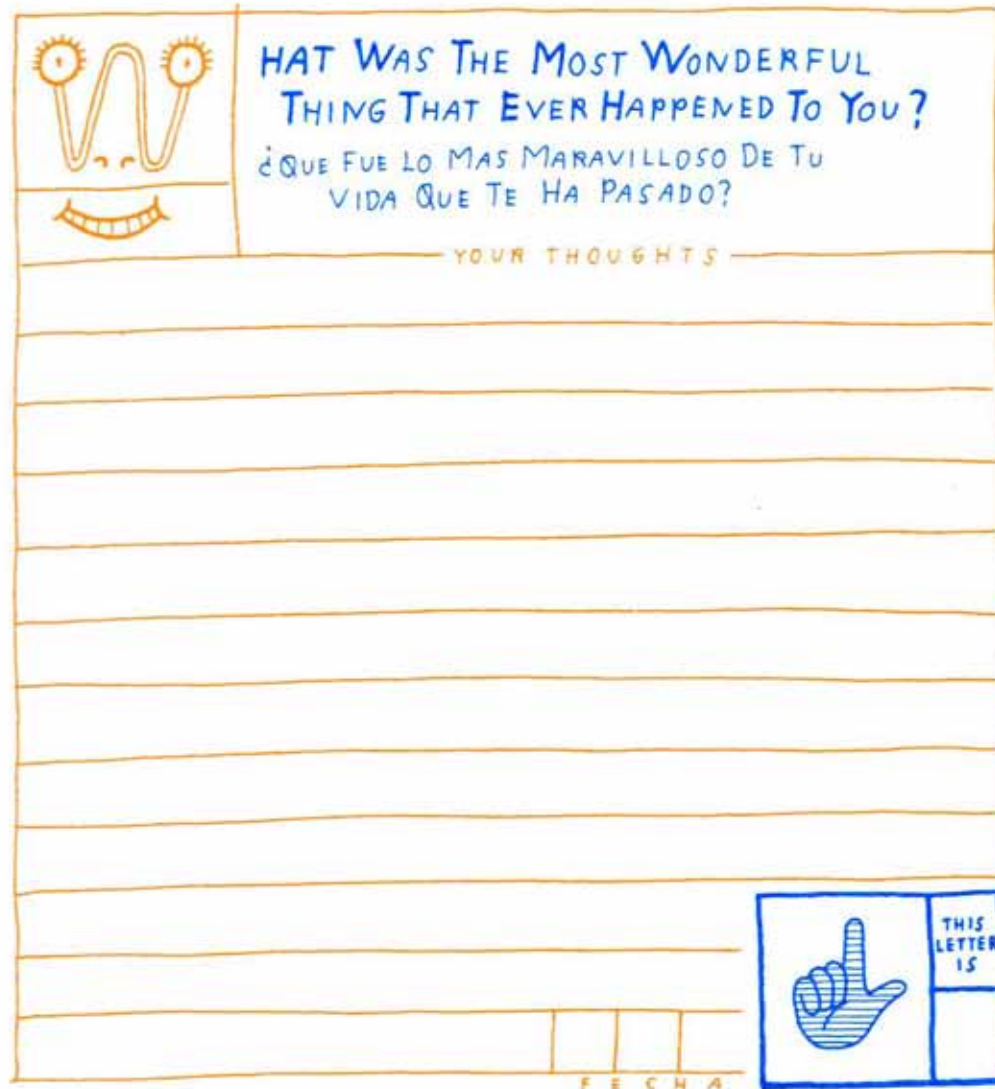 WHAT WAS THE MOST WONDERFUL
THING THAT EVER HAPPENED TO YOU?
¿QUE FUE LO MAS MARAVILLOSO DE TU
VIDA QUE TE HA PASADO?
YOUR THOUGHTS
THIS
LETTER
IS
FECHA